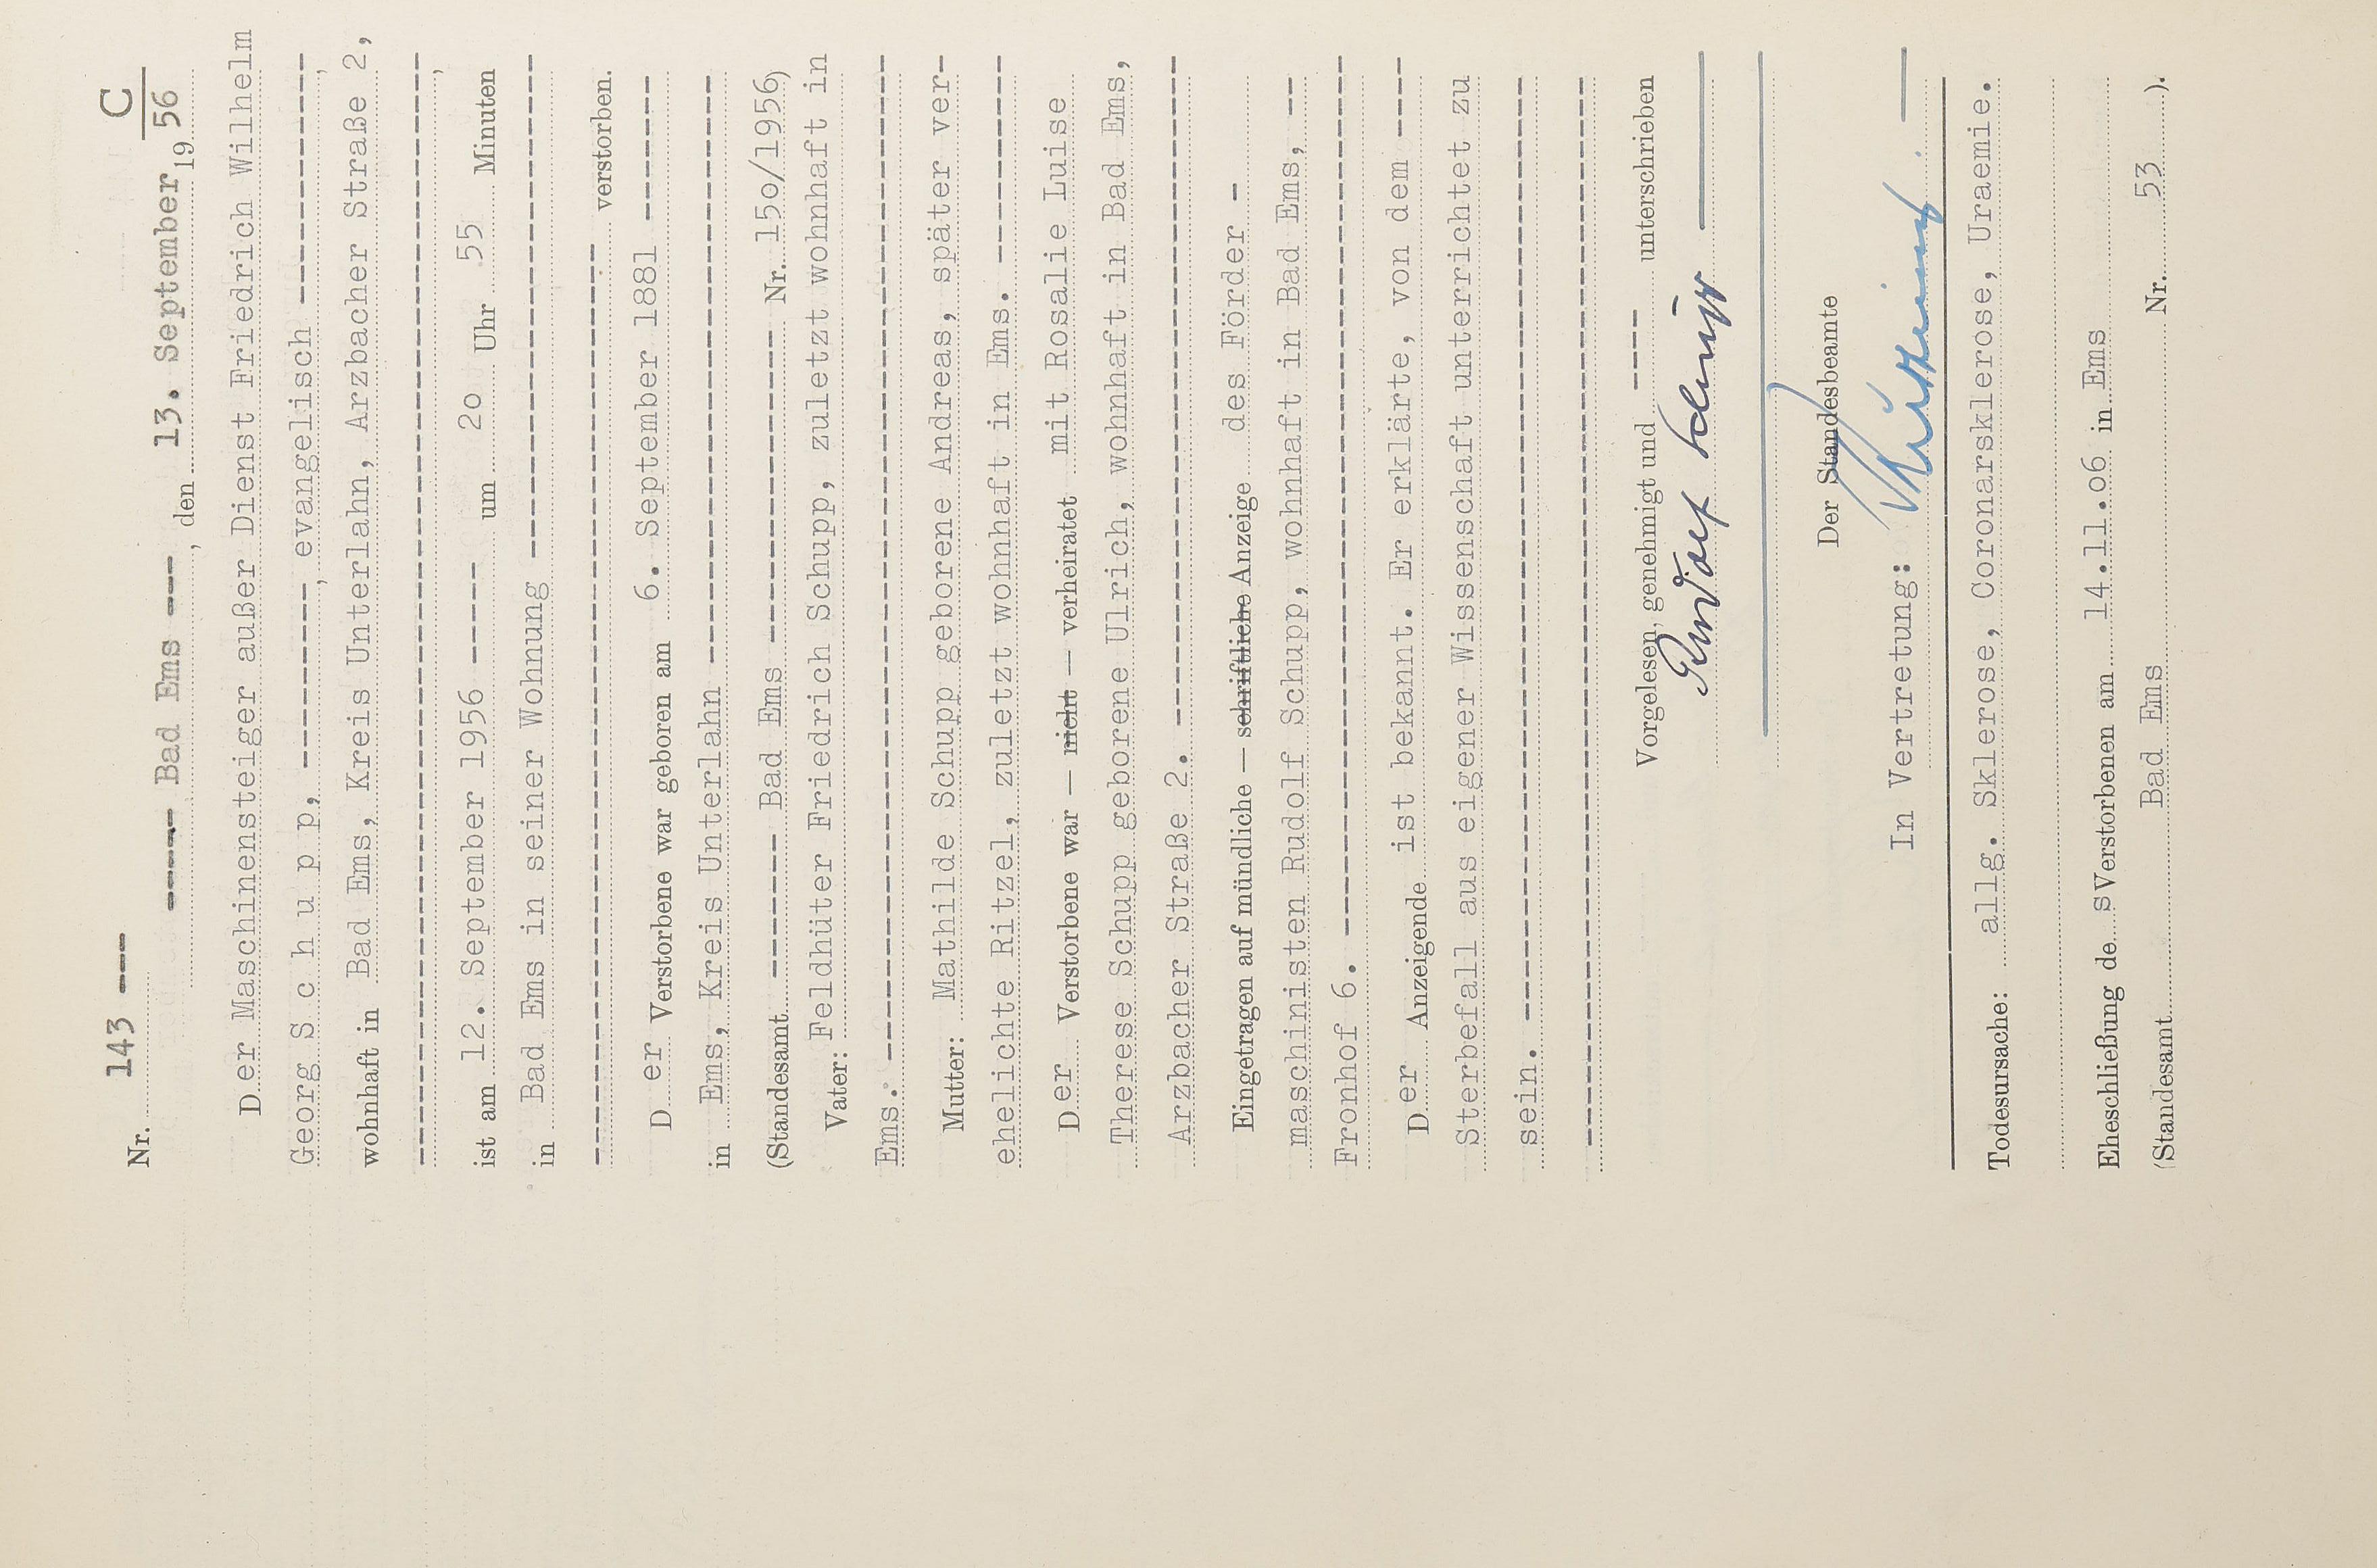 C
Nr. 143 --- 56
----- Bad Ems ---, den 13. September 1956
Der Maschinensteiger außer Dienst Friedrich Wilhelm
Georg S c h u p p, ---------, evangelisch ------------,
wohnhaft in Bad Ems, Kreis Unterlahn, Arzbacher Straße 2,
------------------------------------------------------,
ist am 12. September 1956 ----- um 2o Uhr 55 Minuten
in Bad Ems in seiner Wohnung -------------------------
--------------------------------------------- verstorben.
Der Verstorbene war geboren am 6. September 1881 -------
in Ems, Kreis Unterlahn -----------------------------
(Standesamt ------- Bad Ems --------------- Nr. 15o/1956)
Vater: Feldhüter Friedrich Schupp, zuletzt wohnhaft in
Ems. -------------------------------------------------
Mutter: Mathilde Schupp geborene Andreas, später ver-
ehelichte Ritzel, zuletzt wohnhaft in Ems. ----------
Der Verstorbene war — nicht — verheiratet mit Rosalie Luise
Therese Schupp geborene Ulrich, wohnhaft in Bad Ems,
Arzbacher Straße 2. ---------------------------------
Eingetragen auf mündliche — schriftliche Anzeige des Förder -
maschinisten Rudolf Schupp, wohnhaft in Bad Ems, --
Fronhof 6. ------------------------------------------
Der Anzeigende ist bekannt. Er erklärte, von dem ----
Sterbefall aus eigener Wissenschaft unterrichtet zu
sein. -----------------------------------------------
-----------------------------------------------------
Vorgelesen, genehmigt und ---- unterschrieben
Rudolf Schupp
Der Standesbeamte
In Vertretung:
Todesursache: allg. Sklerose, Coronarsklerose, Uraemie.
Eheschließung des Verstorbenen am 14.11.o6 in Ems
(Standesamt Bad Ems Nr. 53 ).